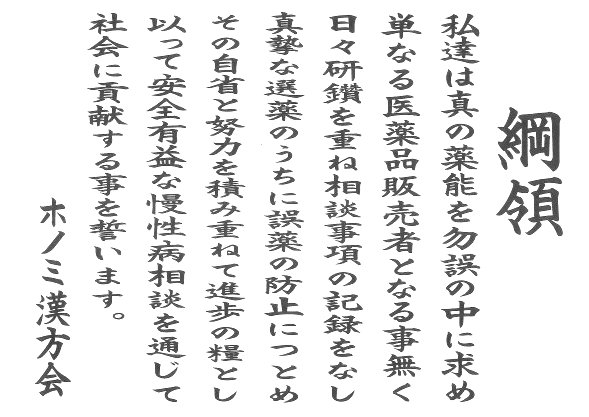 綱領
私達は真の薬能を勿誤の中に求め
単なる医薬品販売者となる事無く
日々研鑽を重ね相談事項の記録をなし
真摯な選薬のうちに誤薬の防止につとめ
その自省と努力を積み重ねて進歩の糧とし
以って安全有益な慢性病相談を通じて
社会に貢献する事を誓います。
ホノミ漢方会